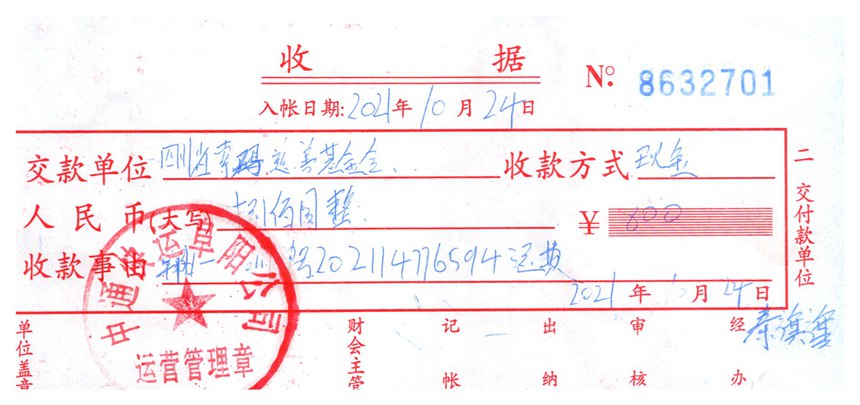 收 据
№: 8632701
入帐日期:2021年10月24日
交款单位 四川省索玛慈善基金会 收款方式 现金
人民币(大写) 捌佰圆整 ¥ 800
收款事由 202114776594 运费
2021年 月24日
二 交付款单位
单位盖章 财会主管 记帐 出纳 审核 经办
中通 运 公司
运营管理章